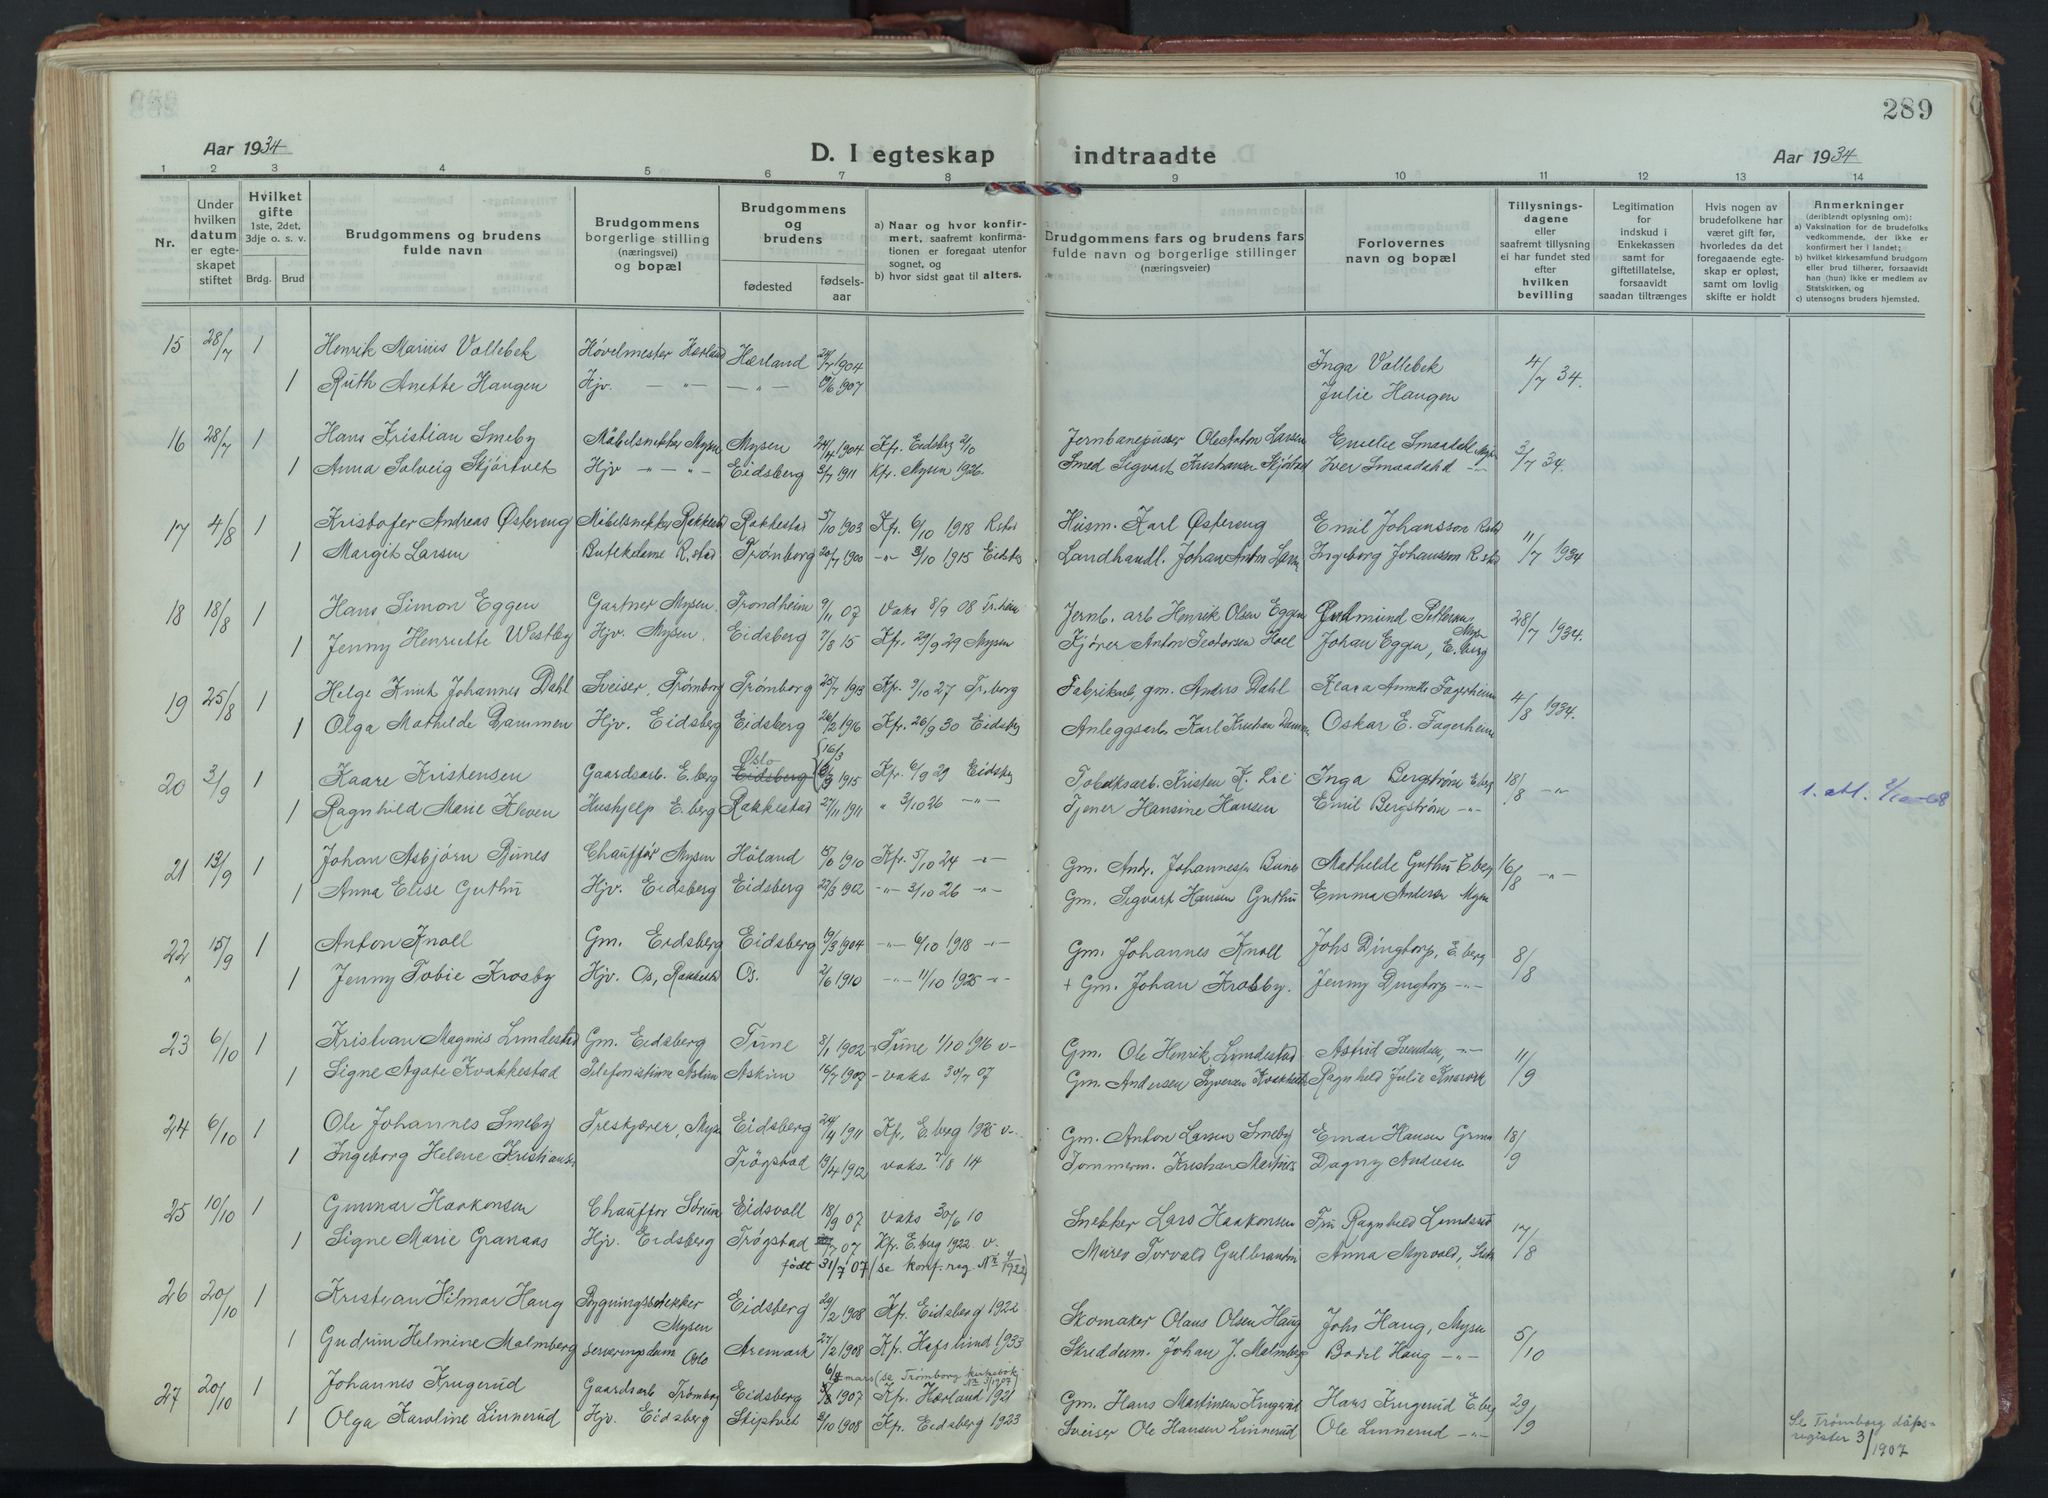 289
Aar 1934
D. I egteskap indtraadte
Aar 1934
1 2 3 4 5 6 7 8 9 10 11 12 13 14
Nr.
Under hvilken datum er egteskapet stiftet
Hvilket gifte 1ste, 2det, 3dje o. s. v.
Brdg. Brud
Brudgommens og brudens fulde navn
Brudgommens borgerlige stilling (næringsvei) og bopæl
Brudgommens og brudens
fødested
fødselsaar
a) Naar og hvor konfirmert, saafremt konfirmationen er foregaat utenfor sognet, og
b) hvor sidst gaat til alters.
Brudgommens fars og brudens fars fulde navn og borgerlige stillinger (næringsveier)
Forlovernes navn og bopæl
Tillysningsdagene eller saafremt tillysning ei har fundet sted efter hvilken bevilling
Legitimation for indskud i Enkekassen samt for giftetillatelse, forsaavidt saadan tiltrænges
Hvis nogen av brudefolkene har været gift før, hvorledes da det foregaaende egteskap er opløst, samt om lovlig skifte er holdt
Anmerkninger
(deriblendt oplysning om):
a) Vaksination for de brudefolks vedkommende, der ikke er konfirmert her i landet;
b) hvilket kirkesamfund brudgom eller brud tilhører, forsaavidt han (hun) ikke er medlem av Statskirken, og
c) utensogns bruders hjemsted.
15 28/7 1 Henrik Marius Vallebek Høvelmester Hærland Hærland 1904 Inga Vallebek 4/7 34.
1 Ruth Anette Haugen Hjv. — " — — " — 1907 Julie Haugen
16 28/7 1 Hans Kristian Smeby Møbelsnekker Mysen Mysen 24/4 1904 Kfr. Eidsberg 2/10 Jernbanepusser Ole Anton Larsen Emelie Smaadahl Mysen 3/7 34.
1 Anna Solveig Skjørtvet Hjv — " — " Eidsberg 3/7 1911 Kfr. Mysen 1926. Smed Sigvart Kristiansen Iver Smaadahl — " —
17 4/8 1 Kristofer Andreas Østereng Møbelsnekker Rakkestad Rakkestad 5/10 1903 Kfr. 6/10 1918 R.stad Husm. Karl Østereng Emil Johansson R.stad 11/7 1934
1 Margit Larsen Butikdame R.stad Trømborg 20/7 1900 — " — 3/10 1915 Eidsbg Landhandl. Johan Anton Larsen Ingeborg Johansson R.stad
18 18/8 1 Hans Simon Eggen Gartner Mysen. Trondheim 9/11 07 Vaks 8/9 08 Tr.heim Jernb. arb Henrik Olsen Eggen Petterson, Mysen 28/7 1934.
1 Jenny Henriette Westby Hjv. Mysen. Eidsberg 7/8 15 Kfr. 29/9 29 Mysen Kjører Anton Teodorsen Hoel Johan Eggen, E.berg
19 25/8 1 Helge Knut Johannes Dahl Sveiser, Trømborg Trømborg 25/7 1913 Kfr. 9/10 27 Tr.borg Fabrikarb. gm. Anders Dahl Klara Annette Fagerheim 4/8 1934.
1 Olga Mathilde Dammen Hjv. Eidsberg Eidsberg 26/2 1916 Kfr. 26/9 30 Eidsbg Anleggsarb. Karl Kristian Dammen Oskar E. Fagerheim
20 3/9 1 Kaare Kristensen Gaardsarb. E.berg Oslo Eidsberg 16/3 1915 Kfr. 6/9 29 Eidsbg Tobaksarb. Kristen K. Lie Inga Bergstrøm E.berg 18/8 — " —
1 Ragnhild Marie Kleven Hushjelp E.berg Rakkestad 27/11 1911 " 3/10 26 — " — Tjener Hansine Hansen Emil Bergstrøm — " —
21 13/9 1 Johan Asbjørn Bunes Chauffør Mysen Høland 1910 Kfr. 5/10 24 — " — Gm. Andr. Johannesen Bunes Mathilde Guthu E.berg 16/8 — " —
1 Anna Elise Guthu Hjv. Eidsberg Eidsberg 22/3 1912 — " — 3/10 26 — " — Gm. Sigvart Hansen Guthu Emma Andersen Mysen
22 15/9 1 Anton Knoll Gm. Eidsberg Eidsberg 19/3 1904 — " — 6/10 1918 — " — Gm. Johannes Knoll Johs Dingtorp, E.berg 8/8
" 1 Jenny Tobie Krosby Hjv. Os, Rakkestad Os. 2/6 1910 — " — 11/10 1925 — " — + Gm. Johan Krosby. Jenny Dingtorp — " —
23 6/10 1 Kristian Magnus Lundestad Gm. Eidsberg Tune 8/1 1902 Tune 1/10 1916 v— Gm. Ole Henrik Lundestad Astrid Svendsen, — " — 11/9
1 Signe Agate Kvakkestad Telefonistinne Askim Askim 16/7 1907 — vaks 30/7 07 Gm. Andersen Syversen Kvakkestad Ragnhild Julie
24 6/10 1 Ole Johannes Smeby Treskjærer, Mysen Eidsberg 24/4 1911 Kfr. E.berg 1925 v— Gm. Anton Larsen Smeby Einar Hansen 18/9
1 Ingeborg Helene Kristiansen Trøgstad 19/4 1912 vaks 7/8 14 Tømmerm. Kristian Dagny Andresen
25 10/10 1 Gunnar Haakonsen Chauffør Sørum Eidsvoll 18/9 07 vaks 30/6 10 Snekker Lars Haakonsen Fru Ragnhild Lundsrud 17/8
1 Signe Marie Granaas Hjv. Eidsberg Trøgstad /7 07 Kfr. E.berg 1922 v. Murer Torvald Gulbrandsen Anna Myrvold,
født 31/7 07 (se konf.reg. № 4/1922)
26 20/10 1 Kristian Hilmar Haug Bygningssnekker Mysen Eidsberg 29/2 1908 Kfr. Eidsberg 1922 Skomaker Olaus Olsen Haug Johs Haug, Mysen 5/10
1 Gudrun Helmine Malmberg Serveringsdame Oslo Aremark 27/2 1908 Kfr. Hafslund 1933 Skreddem. Johan J. Malmberg Bodil Haug — " —
6/ mars (se Trømborg kirkebok № 3/1907)
27 20/10 1 Johannes Krugerud Gaardsarb Trømborg Eidsberg 1907 Kfr. Hærland 1921 Gm. Hans Martinsen Krugerud Hans Krugerud E.berg 29/9
1 Olga Karoline Linnerud Hjv. Eidsberg Skiptvet /10 1908 Kfr. Eidsberg 1923 Sveiser Ole Hansen Linnerud Ole Linnerud — " —
Se Trømborg dåpsregister 3/1907